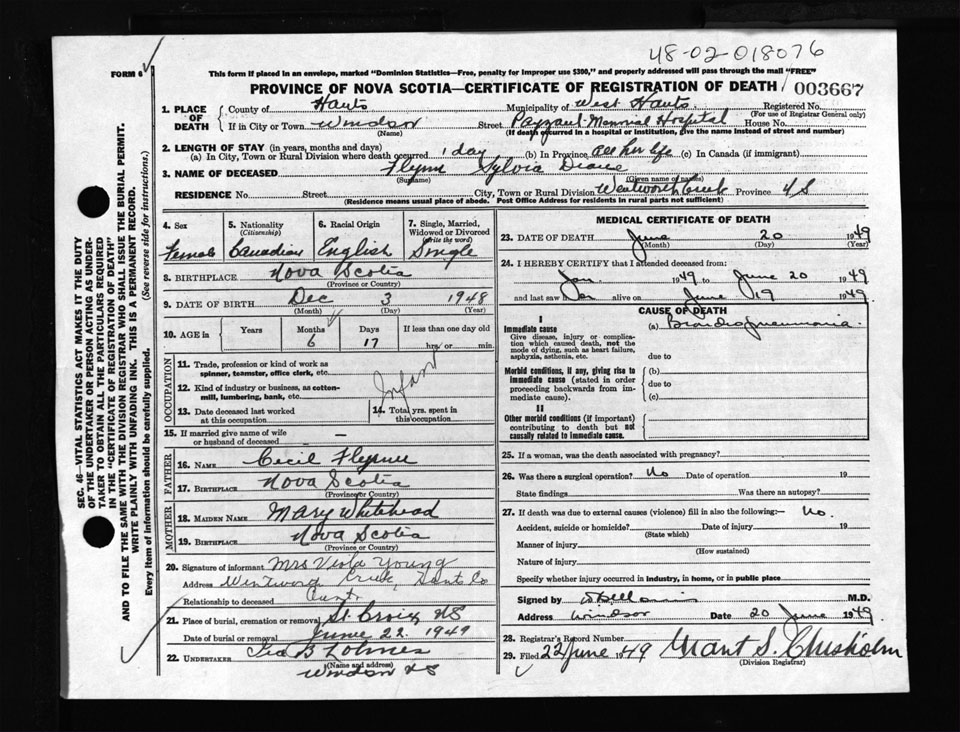 48-02-018076
FORM 6
This form if placed in an envelope, marked "Dominion Statistics—Free, penalty for improper use $300," and properly addressed will pass through the mail "FREE"
PROVINCE OF NOVA SCOTIA—CERTIFICATE OF REGISTRATION OF DEATH 003667
1. PLACE OF DEATH
County of Hants Municipality of West Hants Registered No.
(For use of Registrar General only)
If in City or Town Windsor Street Payzant Memorial Hospital House No.
(Name) (If death occurred in a hospital or institution, give the name instead of street and number)
2. LENGTH OF STAY (in years, months and days)
(a) In City, Town or Rural Division where death occurred 1 day (b) In Province all her life (c) In Canada (if immigrant)
3. NAME OF DECEASED Flynn Sylvia Diane
(Surname) (Given name or names)
RESIDENCE No. Street City, Town or Rural Division Wentworth Creek Province NS
(Residence means usual place of abode. Post Office Address for residents in rural parts not sufficient)
4. Sex 5. Nationality (Citizenship) 6. Racial Origin 7. Single, Married, Widowed or Divorced (write the word)
Female Canadian English Single
8. BIRTHPLACE Nova Scotia
(Province or Country)
9. DATE OF BIRTH Dec 3 1948
(Month) (Day) (Year)
10. AGE in Years Months Days If less than one day old
6 17 hrs or min.
OCCUPATION
11. Trade, profession or kind of work as spinner, teamster, office clerk, etc.
Infant
12. Kind of industry or business, as cotton-mill, lumbering, bank, etc.
13. Date deceased last worked at this occupation
14. Total yrs. spent in this occupation
15. If married give name of wife or husband of deceased —
FATHER
16. NAME Cecil
17. BIRTHPLACE Nova Scotia
(Province or Country)
MOTHER
18. MAIDEN NAME Mary Whitehead
19. BIRTHPLACE Nova Scotia
(Province or Country)
20. Signature of informant Mrs Viola Young
Address Creek, Hants Co
Relationship to deceased Aunt
21. Place of burial, cremation or removal St. Croix NS
Date of burial or removal June 22. 1949
22. UNDERTAKER
(Name and address)
Windsor NS
MEDICAL CERTIFICATE OF DEATH
23. DATE OF DEATH June 20 1949
(Month) (Day) (Year)
24. I HEREBY CERTIFY that I attended deceased from:
Jan. 1949 to June 20 1949
and last saw her alive on June 19 1949.
CAUSE OF DEATH
I
Immediate cause (a)
Give disease, injury or complication which caused death, not the mode of dying, such as heart failure, asphyxia, asthenia, etc.
due to
Morbid conditions, if any, giving rise to immediate cause (stated in order proceeding backwards from immediate cause).
(b)
due to
(c)
II
Other morbid conditions (if important) contributing to death but not causally related to immediate cause.
25. If a woman, was the death associated with pregnancy?
26. Was there a surgical operation? No Date of operation 19
State findings Was there an autopsy?
27. If death was due to external causes (violence) fill in also the following:— No.
Accident, suicide or homicide? Date of injury 19
(State which)
Manner of injury
(How sustained)
Nature of injury
Specify whether injury occurred in industry, in home, or in public place
Signed by M.D.
Address Windsor Date 20 June 1949
28. Registrar's Record Number
29. Filed 22 June 1949 Grant S. Chisholm
(Division Registrar)
SEC. 46—VITAL STATISTICS ACT MAKES IT THE DUTY
OF THE UNDERTAKER OR PERSON ACTING AS UNDER-
TAKER TO OBTAIN ALL THE PARTICULARS REQUIRED
IN THE "CERTIFICATE OF REGISTRATION OF DEATH"
AND TO FILE THE SAME WITH THE DIVISION REGISTRAR WHO SHALL ISSUE THE BURIAL PERMIT.
WRITE PLAINLY WITH UNFADING INK. THIS IS A PERMANENT RECORD.
Every item of information should be carefully supplied. (See reverse side for instructions.)